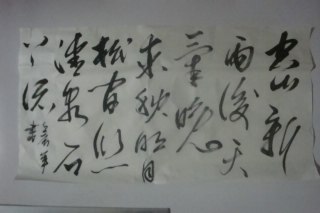 空山新
雨後天
氣晚
来秋明月
松間照
清泉石
上流
書